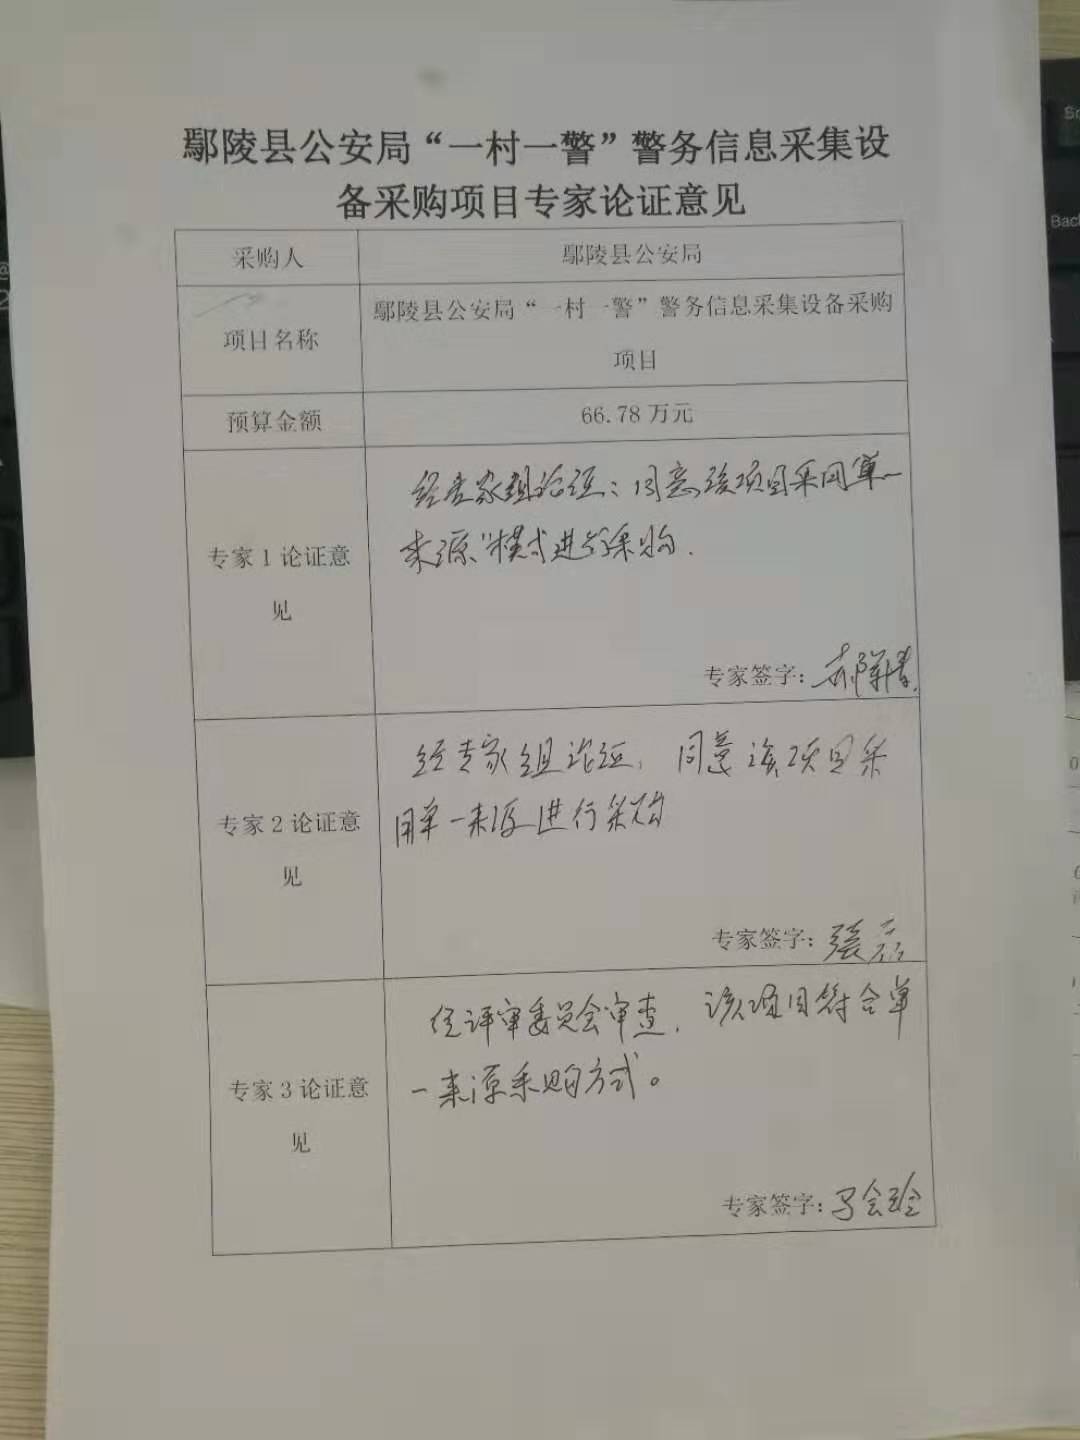 鄢陵县公安局“一村一警”警务信息采集设
备采购项目专家论证意见
采购人
鄢陵县公安局
项目名称
鄢陵县公安局“一村一警”警务信息采集设备采购
项目
预算金额
66.78 万元
专家 1 论证意
见
经专家组论证：同意该项目采用单一
来源”模式进行采购.
专家签字：
专家 2 论证意
见
经专家组论证，同意该项目采
用单一来源进行采购
专家签字：张磊
专家 3 论证意
见
经评审委员会审查，该项目符合单
一来源采购方式。
专家签字：马会玲